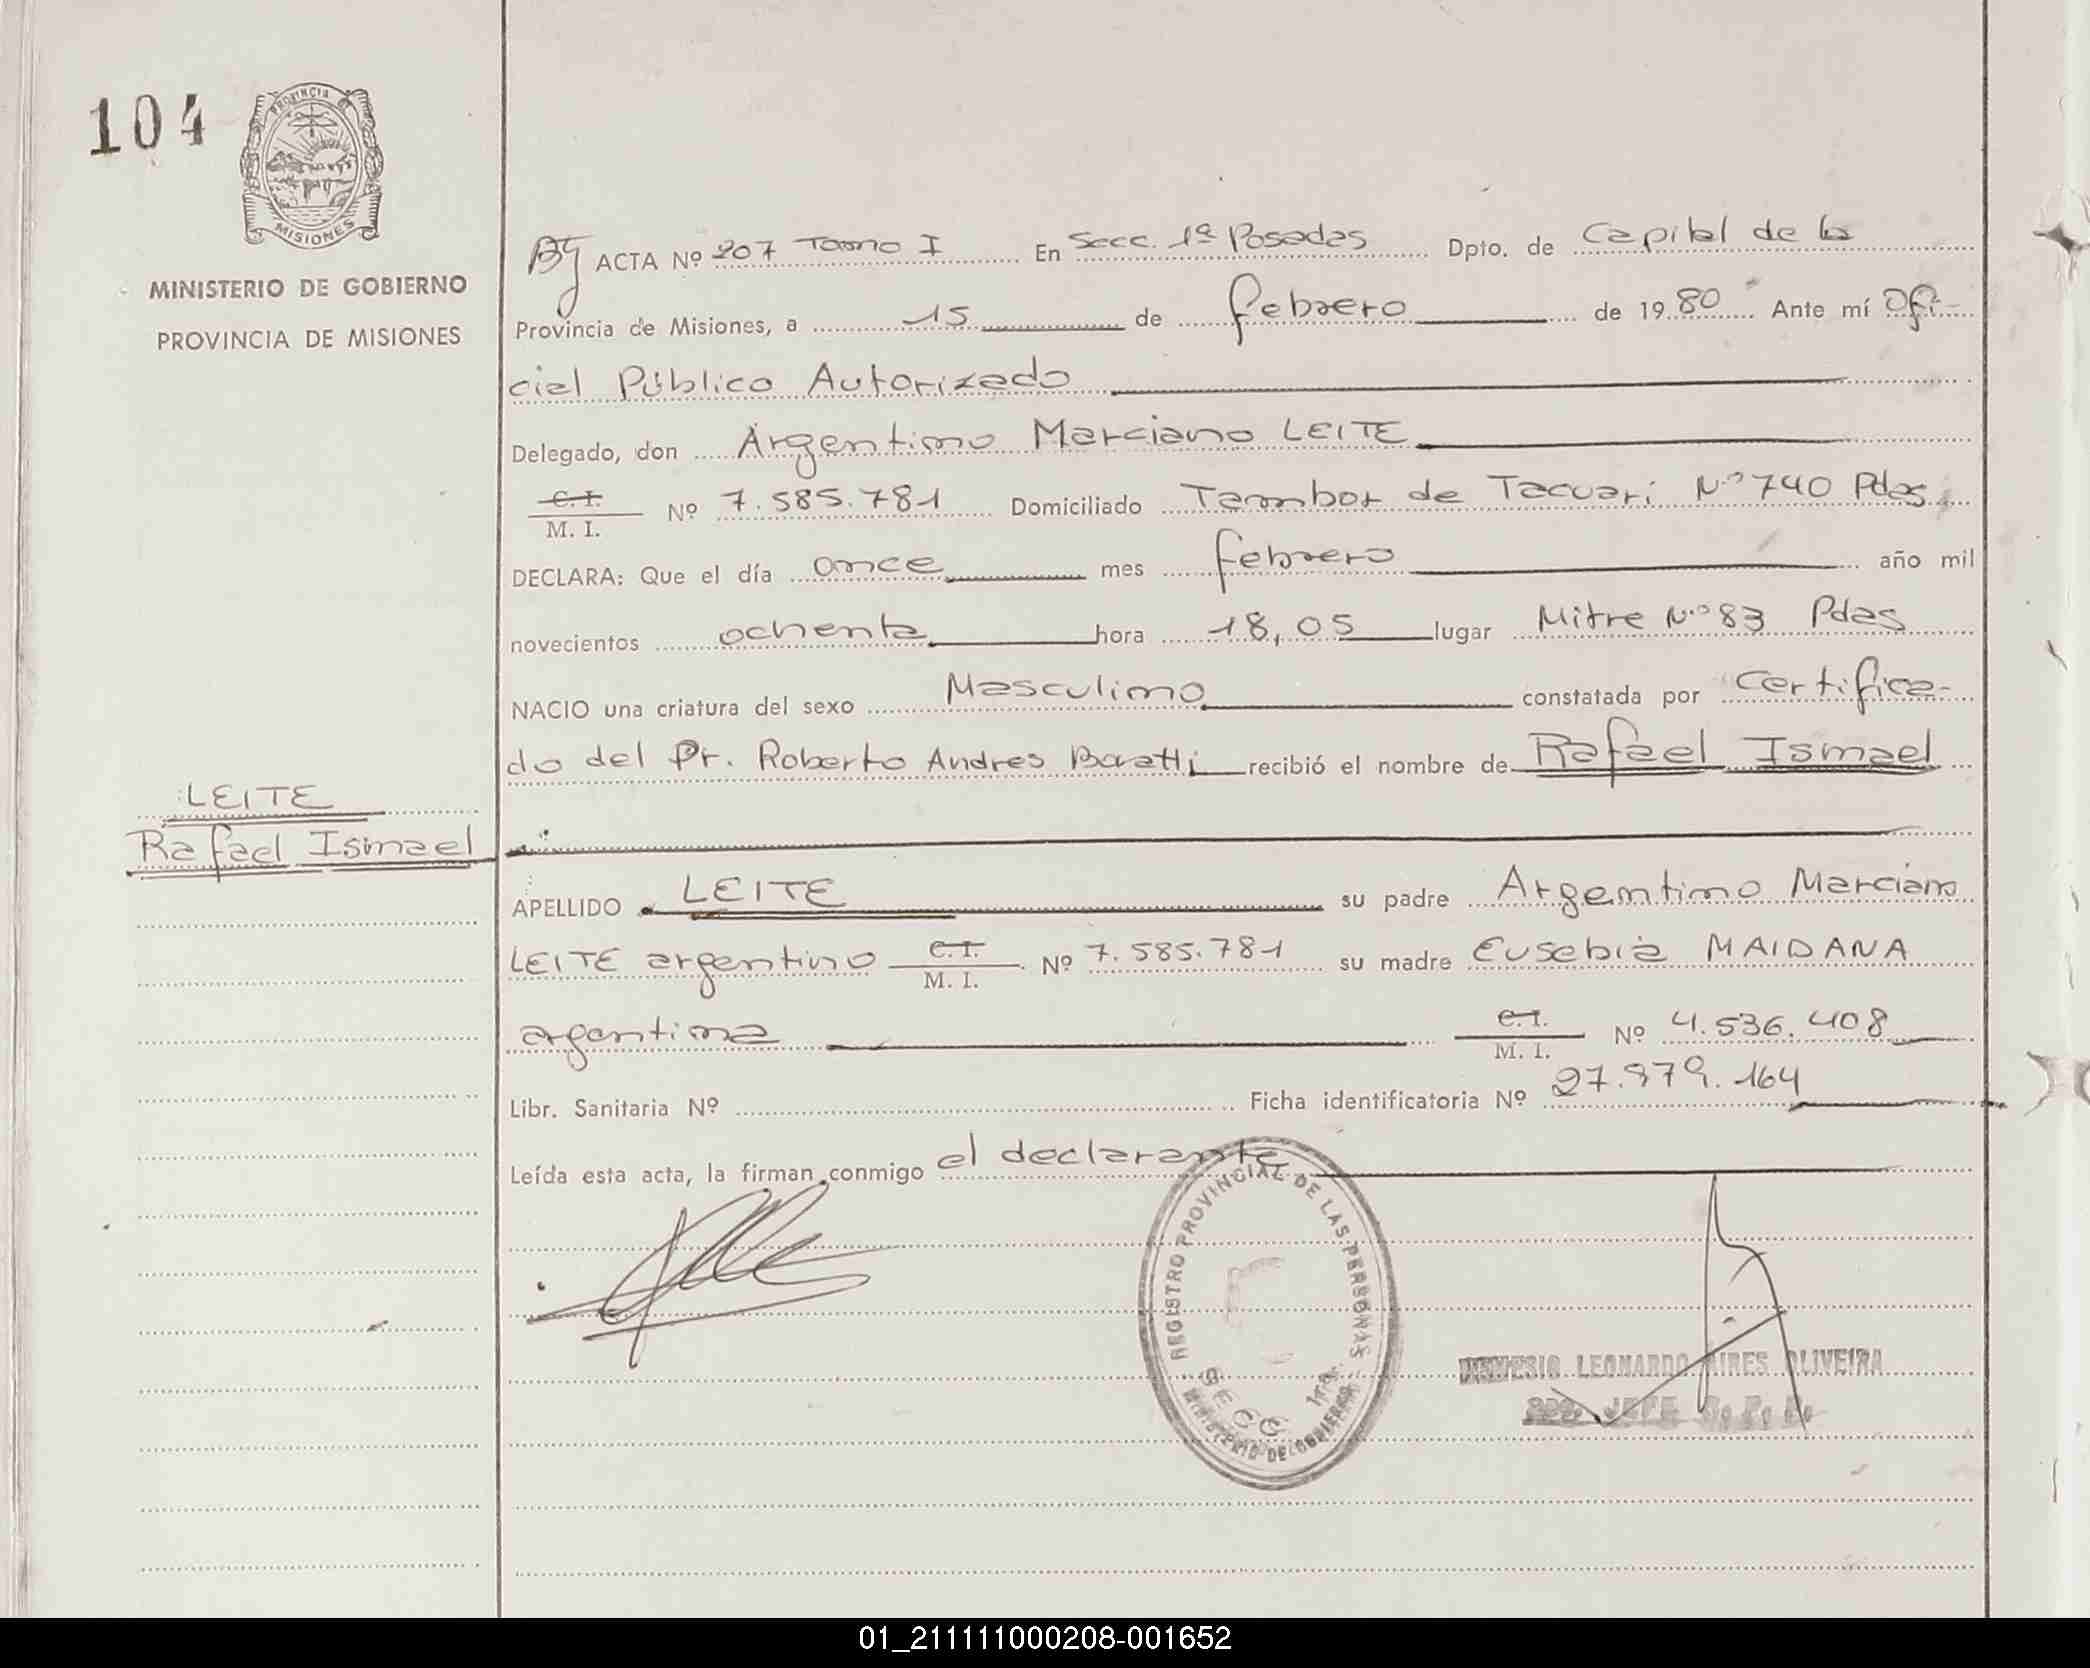 104
PROVINCIA
MISIONES
MINISTERIO DE GOBIERNO
PROVINCIA DE MISIONES
ACTA Nº 207 Tomo I En Secc. 1ª Posadas Dpto. de Capital de la
Provincia de Misiones, a 15 de febrero de 1980 Ante mí Ofi-
cial Público Autorizado
Delegado, don Argentino Marciano LEITE
C. I.
M. I. Nº 7.585.781 Domiciliado Tambor de Tacuari Nº 740 Pdas.
DECLARA: Que el día once mes febrero año mil
novecientos ochenta hora 18,05 lugar Mitre Nº 83 Pdas
NACIO una criatura del sexo Masculino constatada por Certifica-
do del Dr. Roberto Andres Boratti recibió el nombre de Rafael Ismael
LEITE
Rafael Ismael
APELLIDO LEITE su padre Argentino Marciano
LEITE argentino C.I. M. I. Nº 7.585.781 su madre Eusebia MAIDANA
argentina C.I. M. I. Nº 4.536.408
Libr. Sanitaria Nº Ficha identificatoria Nº 27.979.164
Leída esta acta, la firman conmigo el declarante
REGISTRO PROVINCIAL DE LAS PERSONAS
SECC. 1ra.
MINISTERIO DE GOBIERNO
LEONARDO AIRES OLIVEIRA
JEFE
01_211111000208-001652